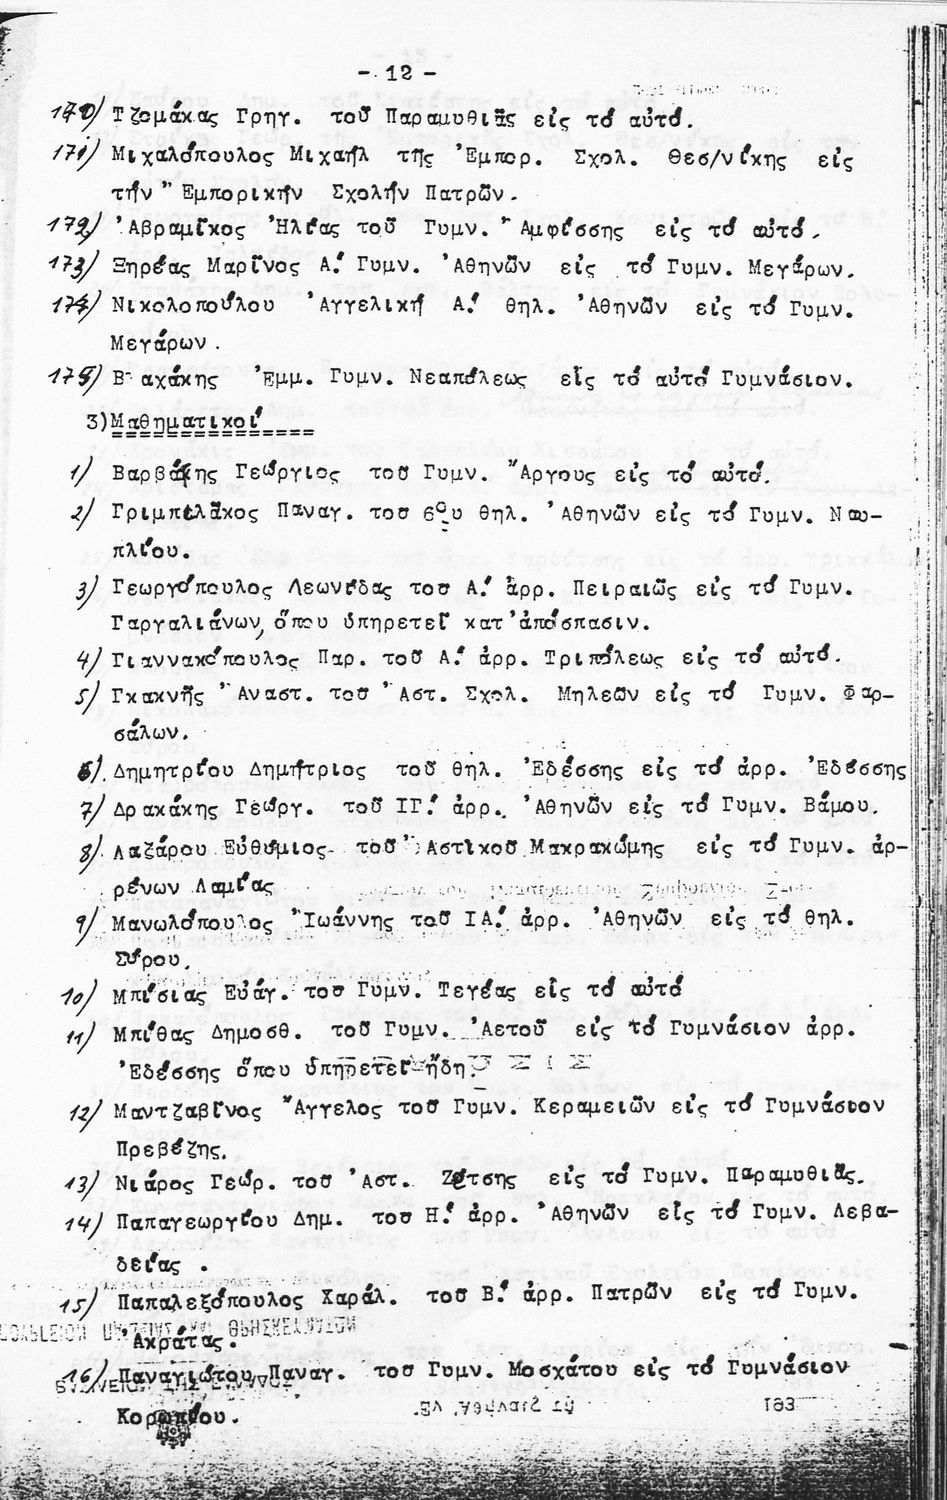 - 12 -
170) Τζομάκας Γρηγ. τοῦ Παραμυθιᾶς εἰς τό αὐτό.
171) Μιχαλόπουλος Μιχαήλ τῆς Ἐμπορ. Σχολ. Θεσ/νίκης εἰς
τήν Ἐμπορικήν Σχολήν Πατρῶν.
172) Ἀβραμῖκος Ἠλίας τοῦ Γυμν. Ἀμφίσσης εἰς τό αὐτό.
173) Ξηρέας Μαρῖνος Α! Γυμν. Ἀθηνῶν εἰς τό Γυμν. Μεγάρων.
174) Νικολοπούλου Ἀγγελική Α! θηλ. Ἀθηνῶν εἰς τό Γυμν.
Μεγάρων.
175) Ἐμμ. Γυμν. Νεαπόλεως εἰς τό αὐτό Γυμνάσιον.
3) Μαθηματικοί
1) Γεώργιος τοῦ Γυμν. Ἄργους εἰς τό αὐτό.
2) Γριμπιλᾶκος Παναγ. τοῦ 6ου θηλ. Ἀθηνῶν εἰς τό Γυμν. Ναυ-
πλίου.
3) Γεωργόπουλος Λεωνίδας τοῦ Α! ἀρρ. Πειραιῶς εἰς τό Γυμν.
Γαργαλιάνων, ὅπου ὑπηρετεῖ κατ' ἀπόσπασιν.
4) Γιαννακόπουλος Παρ. τοῦ Α! ἀρρ. Τριπόλεως εἰς τό αὐτό.
5) Γκακνῆς Ἀναστ. τοῦ Ἀστ. Σχολ. Μηλεῶν εἰς τό Γυμν. Φαρ-
σάλων.
6) Δημητρίου Δημήτριος τοῦ θηλ. Ἐδέσσης εἰς τό ἀρρ. Ἐδέσσης
7) Δρακάκης Γεώργ. τοῦ ΙΓ! ἀρρ. Ἀθηνῶν εἰς τό Γυμν. Βάμου
8) Λαζάρου Εὐθύμιος τοῦ Ἀστικοῦ Μακρακώμης εἰς τό Γυμν. ἀρ-
ρένων Λαμίας
9) Μανωλόπουλος Ἰωάννης τοῦ ΙΑ! ἀρρ. Ἀθηνῶν εἰς τό θηλ.
Σύρου.
10) Μπίσιας Εὐάγ. τοῦ Γυμν. Τεγέας εἰς τό αὐτό
11) Μπίθας Δημοσθ. τοῦ Γυμν. Ἀετοῦ εἰς τό Γυμνάσιον ἀρρ.
Ἐδέσσης ὅπου ὑπηρετεῖ ἤδη.
12) Μαντζαβῖνος Ἄγγελος τοῦ Γυμν. Κεραμειῶν εἰς τό Γυμνάσιον
Πρεβέζης.
13) Νιάρος Γεώρ. τοῦ Ἀστ. Ζίτσης εἰς τό Γυμν. Παραμυθιᾶς.
14) Παπαγεωργίου Δημ. τοῦ Η! ἀρρ. Ἀθηνῶν εἰς τό Γυμν. Λεβα-
δείας.
15) Παπαλεξόπουλος Χαράλ. τοῦ Β! ἀρρ. Πατρῶν εἰς τό Γυμν.
Ἀκράτας.
16) Παναγιώτου Παναγ. τοῦ Γυμν. Μοσχάτου εἰς τό Γυμνάσιον
Κορωπίου.